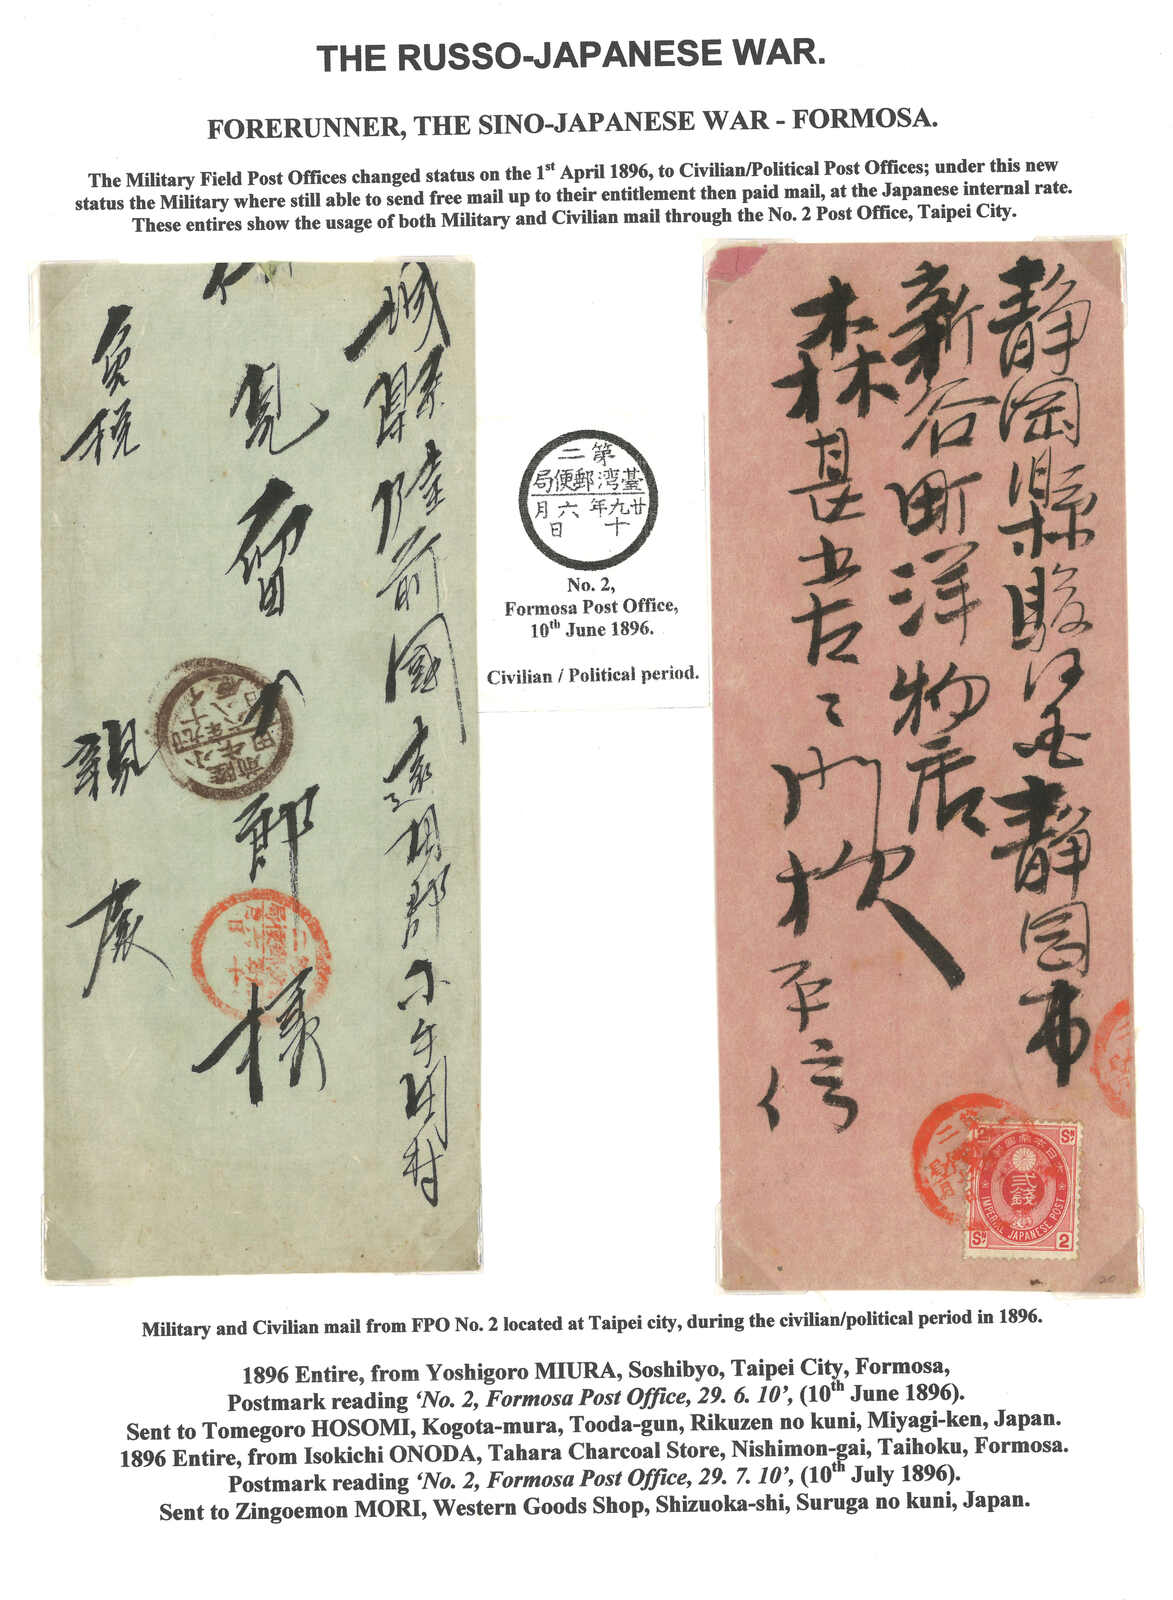 THE RUSSO-JAPANESE WAR.
FORERUNNER, THE SINO-JAPANESE WAR - FORMOSA.
The Military Field Post Offices changed status on the 1st April 1896, to Civilian/Political Post Offices; under this new
status the Military where still able to send free mail up to their entitlement then paid mail, at the Japanese internal rate.
These entires show the usage of both Military and Civilian mail through the No. 2 Post Office, Taipei City.
城縣陸前國遠田郡小牛田村
見留五郎様
免税
親展
第二
臺灣郵便局
廿九年六月
十日
No. 2,
Formosa Post Office,
10th June 1896.
Civilian / Political period.
静岡縣駿河国静岡市
新谷町洋物店
森甚右エ門
平信
大日本帝國郵便
貳錢
IMPERIAL JAPANESE POST
2 Sn
Sn 2
Military and Civilian mail from FPO No. 2 located at Taipei city, during the civilian/political period in 1896.
1896 Entire, from Yoshigoro MIURA, Soshibyo, Taipei City, Formosa,
Postmark reading ‘No. 2, Formosa Post Office, 29. 6. 10’, (10th June 1896).
Sent to Tomegoro HOSOMI, Kogota-mura, Tooda-gun, Rikuzen no kuni, Miyagi-ken, Japan.
1896 Entire, from Isokichi ONODA, Tahara Charcoal Store, Nishimon-gai, Taihoku, Formosa.
Postmark reading ‘No. 2, Formosa Post Office, 29. 7. 10’, (10th July 1896).
Sent to Zingoemon MORI, Western Goods Shop, Shizuoka-shi, Suruga no kuni, Japan.